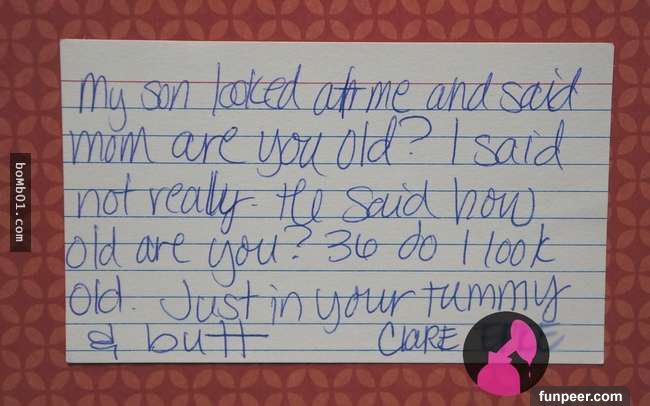 my son looked at me and said
mom are you old? I said
not really. He said how
old are you? 36 do I look
old. Just in your tummy
& butt CLARE
boMb01.com
funpeer.com